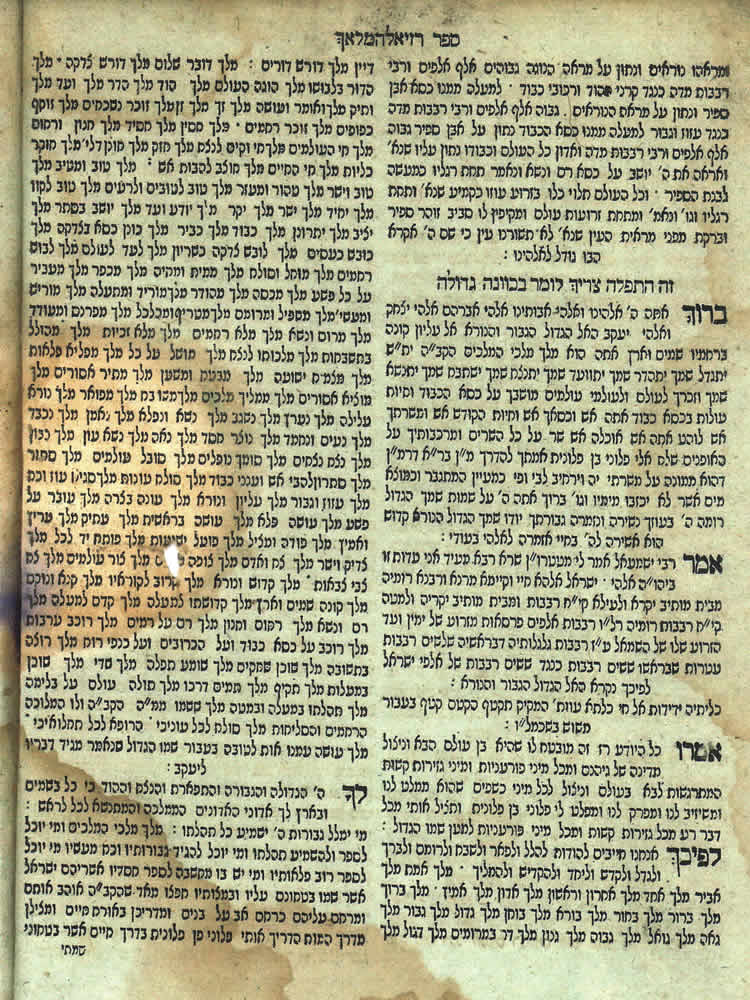 ספר רזיאל המלאך
ומראהו נוראים ונתון על מראה הנוגה גבוהים אלף אלפים ורבי
רבבות מדה כנגד קרני ההוד ורכובי כבוד · למעלה ממנו כסא אבן
ספיר ונתון על מראה הנוראים · גבוה אלף אלפים ורבי רבבות מדה
כנגד עזוז וגבור למעלה ממנו כסא הכבוד נתון על אבן ספיר גבוה
אלף אלפים ורבי רבבות מדה ואדון כל העולם וכבודו נתון עליו שנא'
ואראה את ה' יושב על כסא רם ונשא ונאמר תחת רגליו כמעשה
לבנת הספיר · וכל העולם תלוי כלו בזרוע עוזו כקמיע שנא' ותחת
רגליו וגו' ונאמ' ומתחת זרועות עולם ומקיפין לו סביב זוהר ספיר
וברקת מפני מראית העין שנא' לא תשורנו עין כי שם ה' אקרא
הבו גודל לאלהינו :
זה התפלה צריך לומר בכוונה גדולה
ברוך אתה ה' אלהינו ואלהי אבותינו אלהי אברהם אלהי יצחק
ואלהי יעקב האל הגדול הגבור והנורא אל עליון קונה
ברחמיו שמים וארץ אתה הוא מלך מלכי המלכים הקב"ה ית"ש
יתגדל שמך יתהדר שמך יתוועד שמך יתנצח שמך ישתבח שמך יתנשא
שמך וזכרך לעולם ולעולמי עולמים מושבך על כסא הכבוד וחיות
עולות בכסא כבוד אתה אש וכסאך אש וחיות הקודש אש ומשרתיך
אש לוהט אתה אש אוכלה אש שר על כל השרים ומרכבותיך על
האופנים שלח אלי פלוני בן פלונית אמתך להדרך מ"ן בר"א דרמ"ן
דהוא ממונה על משרתי יה וירחיב לבי ופי כמעיין המתגבר וכמוצא
מים אשר לא יכזבו מימיו וגו' ברוך אתה ה' על שמות שמך הגדול
רומה ה' בעוזך נשירה ונזמרה גבורתך יודו שמך הגדול הנורא קדוש
הוא אשירה לה' בחיי אזמרה לאלהי בעודי :
אמר רבי ישמעאל אמר לי מטטרו"ן שרא רבא מעיד אני עדות זו
ביהו"ה אלהי ישראל אלהא חיי וקיימא מרנא ורבנא רומיה
מבית מותיב יקרא ולעילא קי"ח רבבות ומבית מותיב יקריה ולמטה
קי"ח רבבות רומיה רל"ו רבבות אלפים פרסאות מזרוע של ימין ועד
הזרוע שלו של השמאל ע"ז רבבות גלגולותיה דבראשיה שלשים רבבות
עטרות שבראשו ששים רבבות כנגד ששים רבבות של אלפי ישראל
לפיכך נקרא האל הגדול הגבור והנורא :
כליתיה ידידות אל חי כלתא עוזת' המקיק תקטף הקטה קטף בעבור
משוש בשכמל"ו :
אמרו כל היודע רז זה מובטח לו שהוא בן עולם הבא וניצול
מדינה של גיהנם ומכל מיני פורעניות ומיני גזירות קשות
המתרגשות לבא בעולם וניצול לכל מיני כשפים שהוא ממלט לנו
ומשיזיב לנו ומפרק לנו ומפלט לי פלוני בן פלונית ותציל אותי מכל
דבר רע מכל גזירות קשות ומכל מיני פורעניות למען שמו הגדול :
לפיכך אנחנו חייבים להודות להלל ולפאר ולשבח ולרומם ולברך
ולגדל ולקדש וליחד ולהקדיש ולהמליך · מלך אמת מלך
אביר מלך אחד מלך אחרון וראשון מלך אדון מלך אמיץ · מלך ברוך
מלך ברור מלך בחור מלך בורא מלך בוחן מלך גדול מלך גבור מלך
גאה מלך גואל מלך גבוה מלך גנון מלך דר במרומים מלך דגול מלך
דיין מלך דורש דורים : מלך דובר שלום מלך דורש צדקה · מלך
הדור בלבושו מלך הוגה העולם מלך הוד מלך הדר מלך ועד מלך
ותיק מלך ואומר ועושה מלך זך מלך זן מלך זוכר נשכחים מלך זוקף
כפופים מלך זוכר רחמים · מלך חסין מלך חסיד מלך חנון ורחום
מלך חי העולמים מלך חי וקים לנצח מלך חזק מלך חונן דלי' מלך חוקר
כליות מלך חי החיים מלך חוצב להבות אש : מלך טוב ומטיב מלך
טוב וישר מלך טהור ומטהר מלך טוב לטובים ולרעים מלך טוב לקוו
מלך יחיד מלך ישר מלך יקר מלך יודע ועד מלך יושב בסתר מלך
יציב מלך יתרון מלך כבוד מלך כביר מלך כונן כסא בצדקה מלך
כובש כעסים מלך לובש צדקה כשריון מלך לעד לעולם מלך לבוש
רחמים מלך מוחל וסולח מלך ממית ומחיה מלך מכפר מלך מעביר
על כל פשע מלך מכסה מלך מהודר מלך מוריד ומתעלה מלך מוריש
ומעשי' מלך משפיל ומרומם מלך מטריף ומכלכל מלך מפרנס ומעודד
מלך מרום ונשא מלך מלא רחמים מלך מלא זכיות מלך מהולל
בתשבחות מלך מלכותו לנצח מלך מושל על כל מלך מפליא פלאות
מלך מצמיח ישועה מלך מבטח ומשען מלך מתיר אסורים מלך
מוציא אסורים מלך ממליך מלכים מלך משובח מלך מפואר מלך נורא
עלילה מלך נערץ מלך נשגב מלך נשא ונפלא מלך נאמן מלך נכבד
מלך נעים ונחמד מלך נוצר חסד מלך נאה מלך נשא עון מלך נכון
מלך נצח נצחים מלך סומך נופלים מלך סובל עולמים מלך סתר
מלך סתרון להבי אש וענני כבוד מלך סולח עונות מלך סגיא עוז וכח
מלך עזוז וגבור מלך עליון ונורא מלך עונה בצרה מלך עובר על
פשע מלך עושה פלא מלך עושה בראשית מלך עתיק מלך עריץ
ואמיץ מלך פודה ומציל מלך פועל ישועות מלך פותח יד לכל מלך
צדיק וישר מלך צח ואדם מלך צופה מלך צור עולמים מלך צח
צבי צבאות · מלך קדוש ונורא מלך קרוב לקוראיו מלך קנא ונוקם
מלך קונה שמים וארץ מלך קדושתו למעלה מלך קדם למעלה מלך
רם ונשא מלך רחום וחנון מלך רם על רמים מלך רוכב ערבות
מלך רוכב על כסא כבוד ועל הכרובים ועל כנפי רוח מלך רוצה
בתשובה מלך שוכן שחקים מלך שומע תפלה מלך שדי מלך שוכן
במעלות מלך תקיף מלך תמים דרכו מלך תולה עולם על בלימה
מלך תהלתו במעלה ובמטה מלך ששמו ממ"ה הקב"ה ולו המלוכה
הרחמים והסליחות מלך סולח לכל עוניכי · הרופא לכל תחלואיכי ·
מלך עושה עמנו אות לטובה בעבור שמו הגדול שנאמר מגיד דבריו
ליעקב :
לך ה' הגדולה והגבורה והתפארת והנצח וההוד כי כל בשמים
ובארץ לך אדוני האדונים הממלכה והמתנשא לכל לראש :
מי ימלל גבורות ה' ישמיע כל תהלתו : מלך מלכי המלכים ומי יוכל
לספר ולהשמיע תהלתו ומי יוכל להגיד גבורותיו וכח מעשיו מי יוכל
לספר רוב פלאותיו ומי יש בו מחשבה לספר חסדיו אשריהם ישראל
אשר שמו בטחונם עליו ובמצותיו חפצו מאד שהקב"ה אוהב אותם
ומרחם עליהם כרחם אב על בנים ומדריכן באורח חיים ומצילן
מדרך המות הדריך אותי פלוני בן פלונית בדרך חיים אשר בטחוני
שמתי